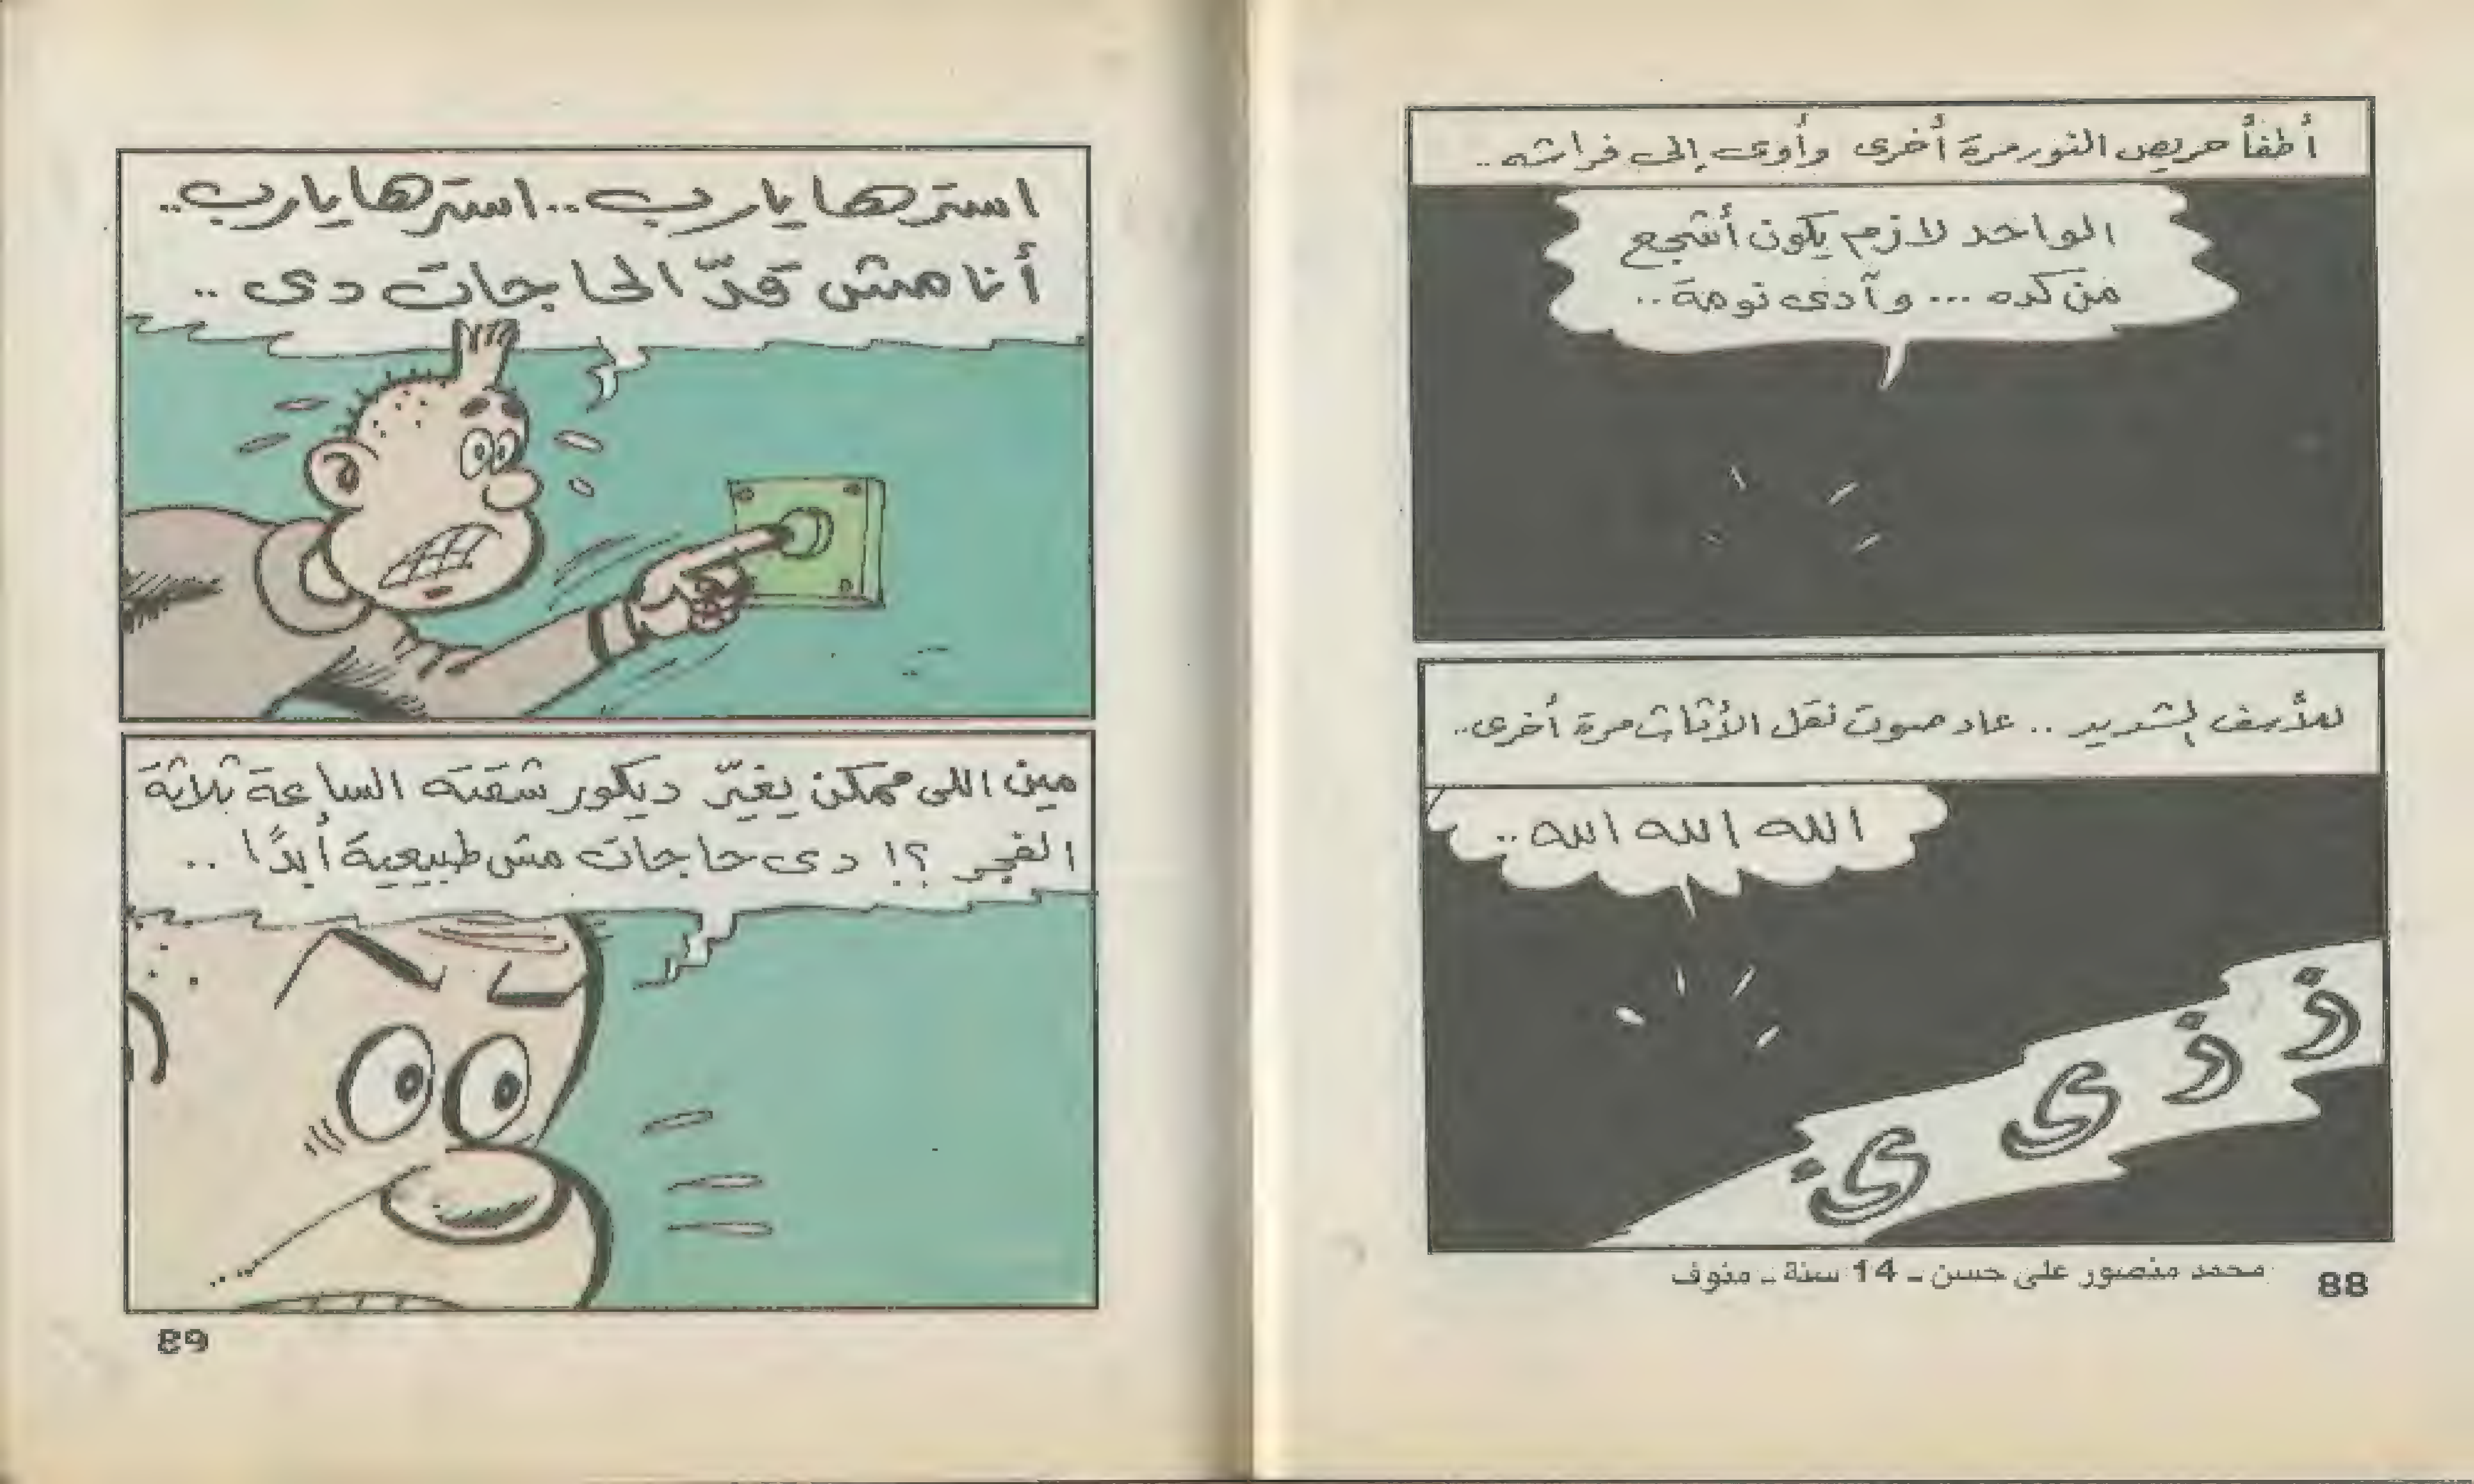 أطفأ حريص النور مرة أخرى وأوى إلى فراشه..
الواحد لازم يكون أشجع
من كده ... وآدى نومة..
للأسف الشديد .. عاد صوت نقل الأثاث مرة أخرى..
الله الله الله ..
ز ز ى ى
محمد منصور على حسن - 14 سنة - منوف
88
استرها يارب .. استرها يارب..
أنا مش قدّ الحاجات دى ..
مين اللى ممكن يغيّر ديكور شقته الساعة ثلاثة
الفجر ؟! دى حاجات مش طبيعية أبدًا ..
89